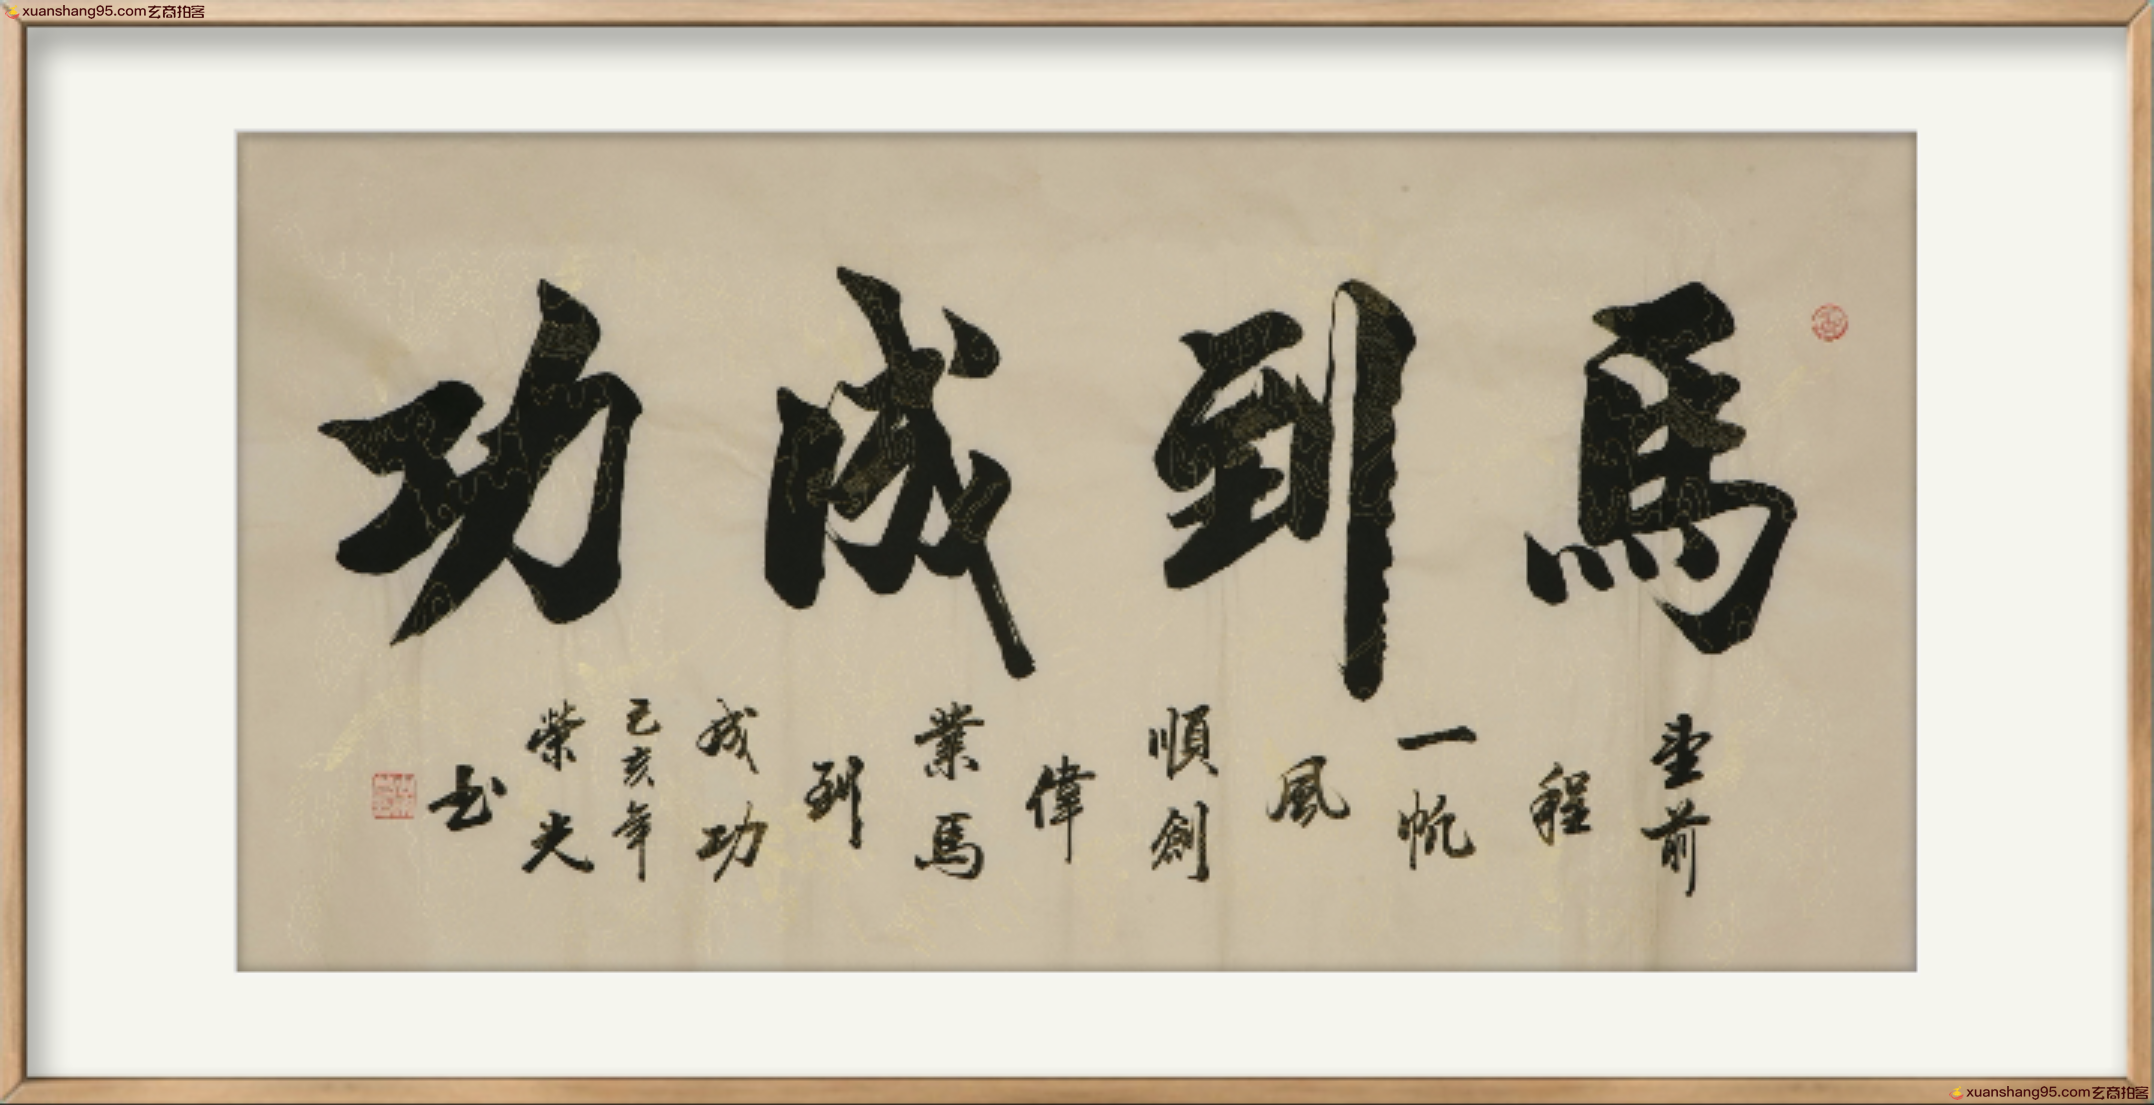 xuanshang95.com玄商拍客
馬到成功
望前
程
一帆
風
順創
偉
業馬
到
成功
己亥年
榮光
书
xuanshang95.com玄商拍客